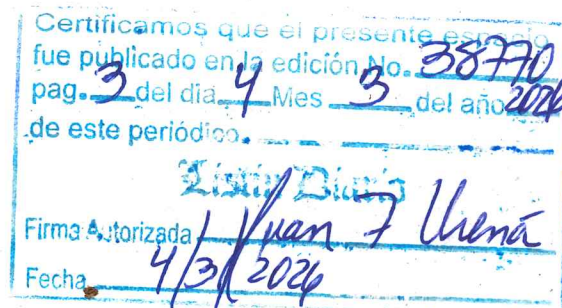 Certificamos que el presente espacio
fue publicado en la edición No. 38770
pag. 3 del dia 4 Mes 3 del año 2026
de este periódico.
Listin Diario
Firma Autorizada Juan F Urená
Fecha 4/3/2026